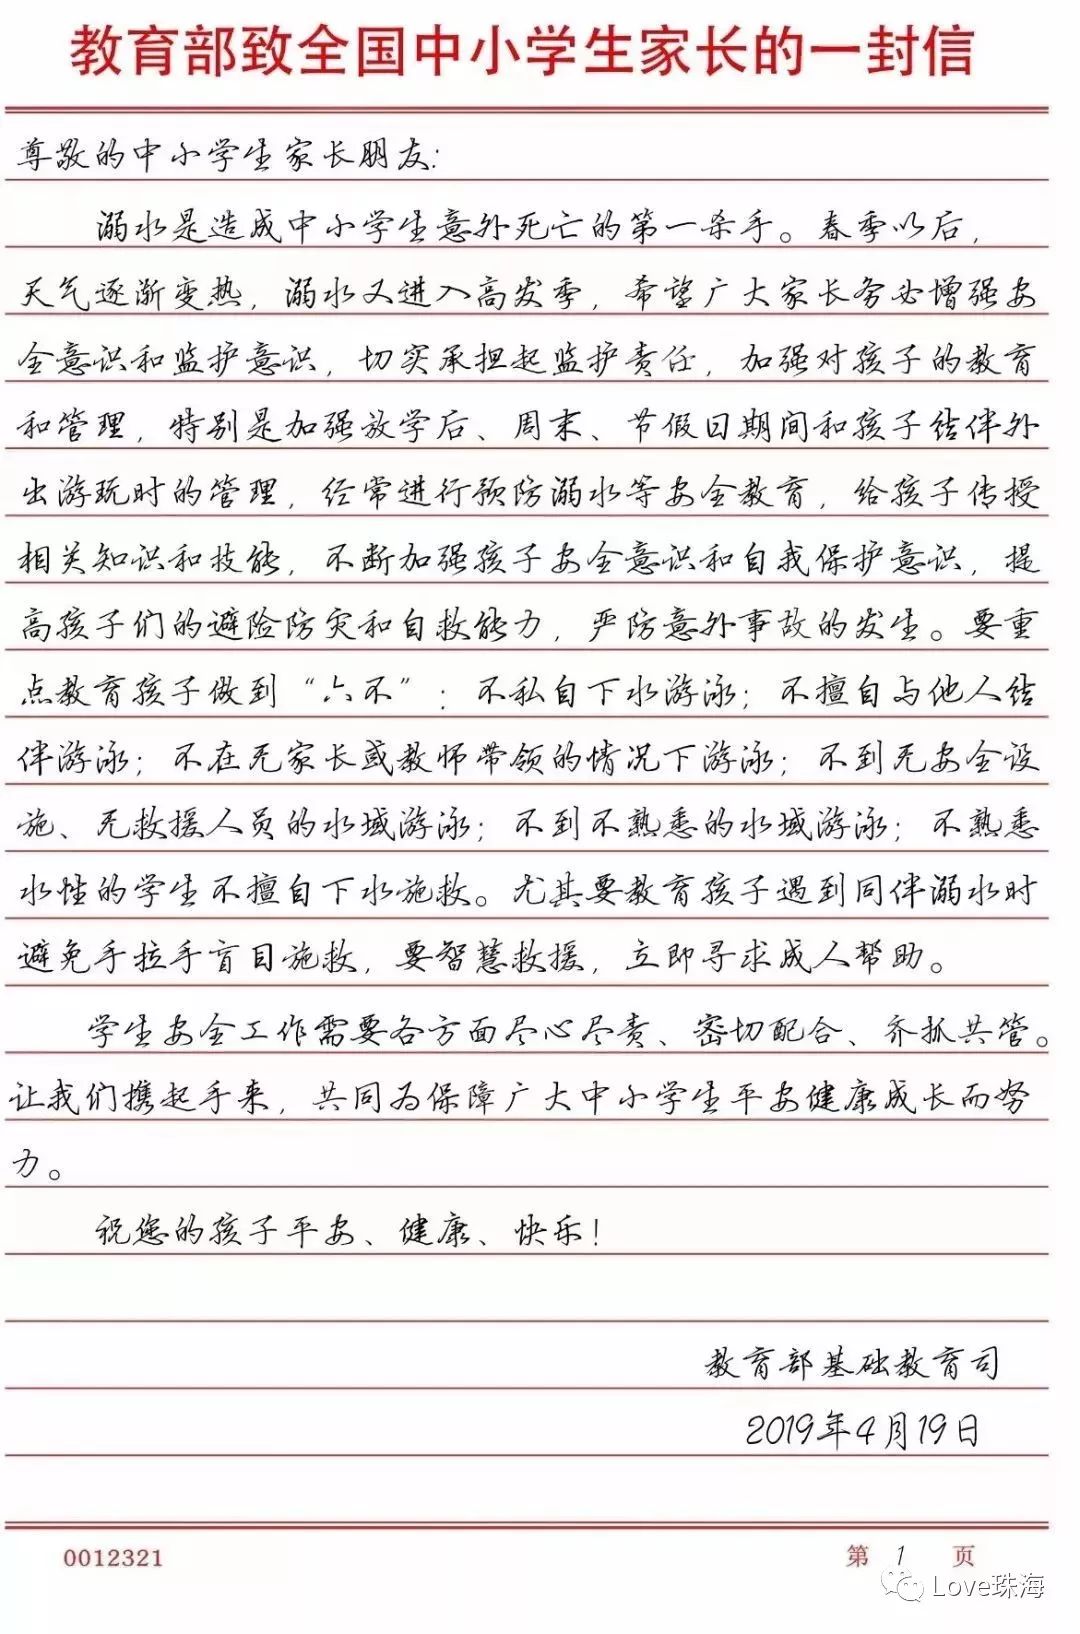 教育部致全国中小学生家长的一封信
尊敬的中小学生家长朋友：
溺水是造成中小学生意外死亡的第一杀手。春季以后，
天气逐渐变热，溺水又进入高发季，希望广大家长务必增强安
全意识和监护意识，切实承担起监护责任，加强对孩子的教育
和管理，特别是加强放学后、周末、节假日期间和孩子结伴外
出游玩时的管理，经常进行预防溺水等安全教育，给孩子传授
相关知识和技能，不断加强孩子安全意识和自我保护意识，提
高孩子们的避险防灾和自救能力，严防意外事故的发生。要重
点教育孩子做到“六不”：不私自下水游泳；不擅自与他人结
伴游泳；不在无家长或教师带领的情况下游泳；不到无安全设
施、无救援人员的水域游泳；不到不熟悉的水域游泳；不熟悉
水性的学生不擅自下水施救。尤其要教育孩子遇到同伴溺水时
避免手拉手盲目施救，要智慧救援，立即寻求成人帮助。
学生安全工作需要各方面尽心尽责、密切配合、齐抓共管。
让我们携起手来，共同为保障广大中小学生平安健康成长而努
力。
祝您的孩子平安、健康、快乐！
教育部基础教育司
2019年4月19日
0012321 第 1 页
Love珠海